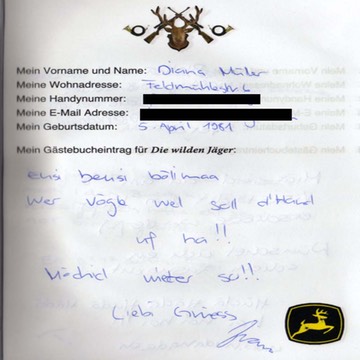 Mein Vorname und Name: Diana Müller
Meine Wohnadresse: Feldmühlestr. 6
Meine Handynummer:
Meine E-Mail Adresse:
Mein Geburtsdatum: 5. April 1981
Mein Gästebucheintrag für Die wilden Jäger:
bölimaa
wer vögle wel söll d'Hand
uf ha!!
wieter so!!
Liebi Grüess